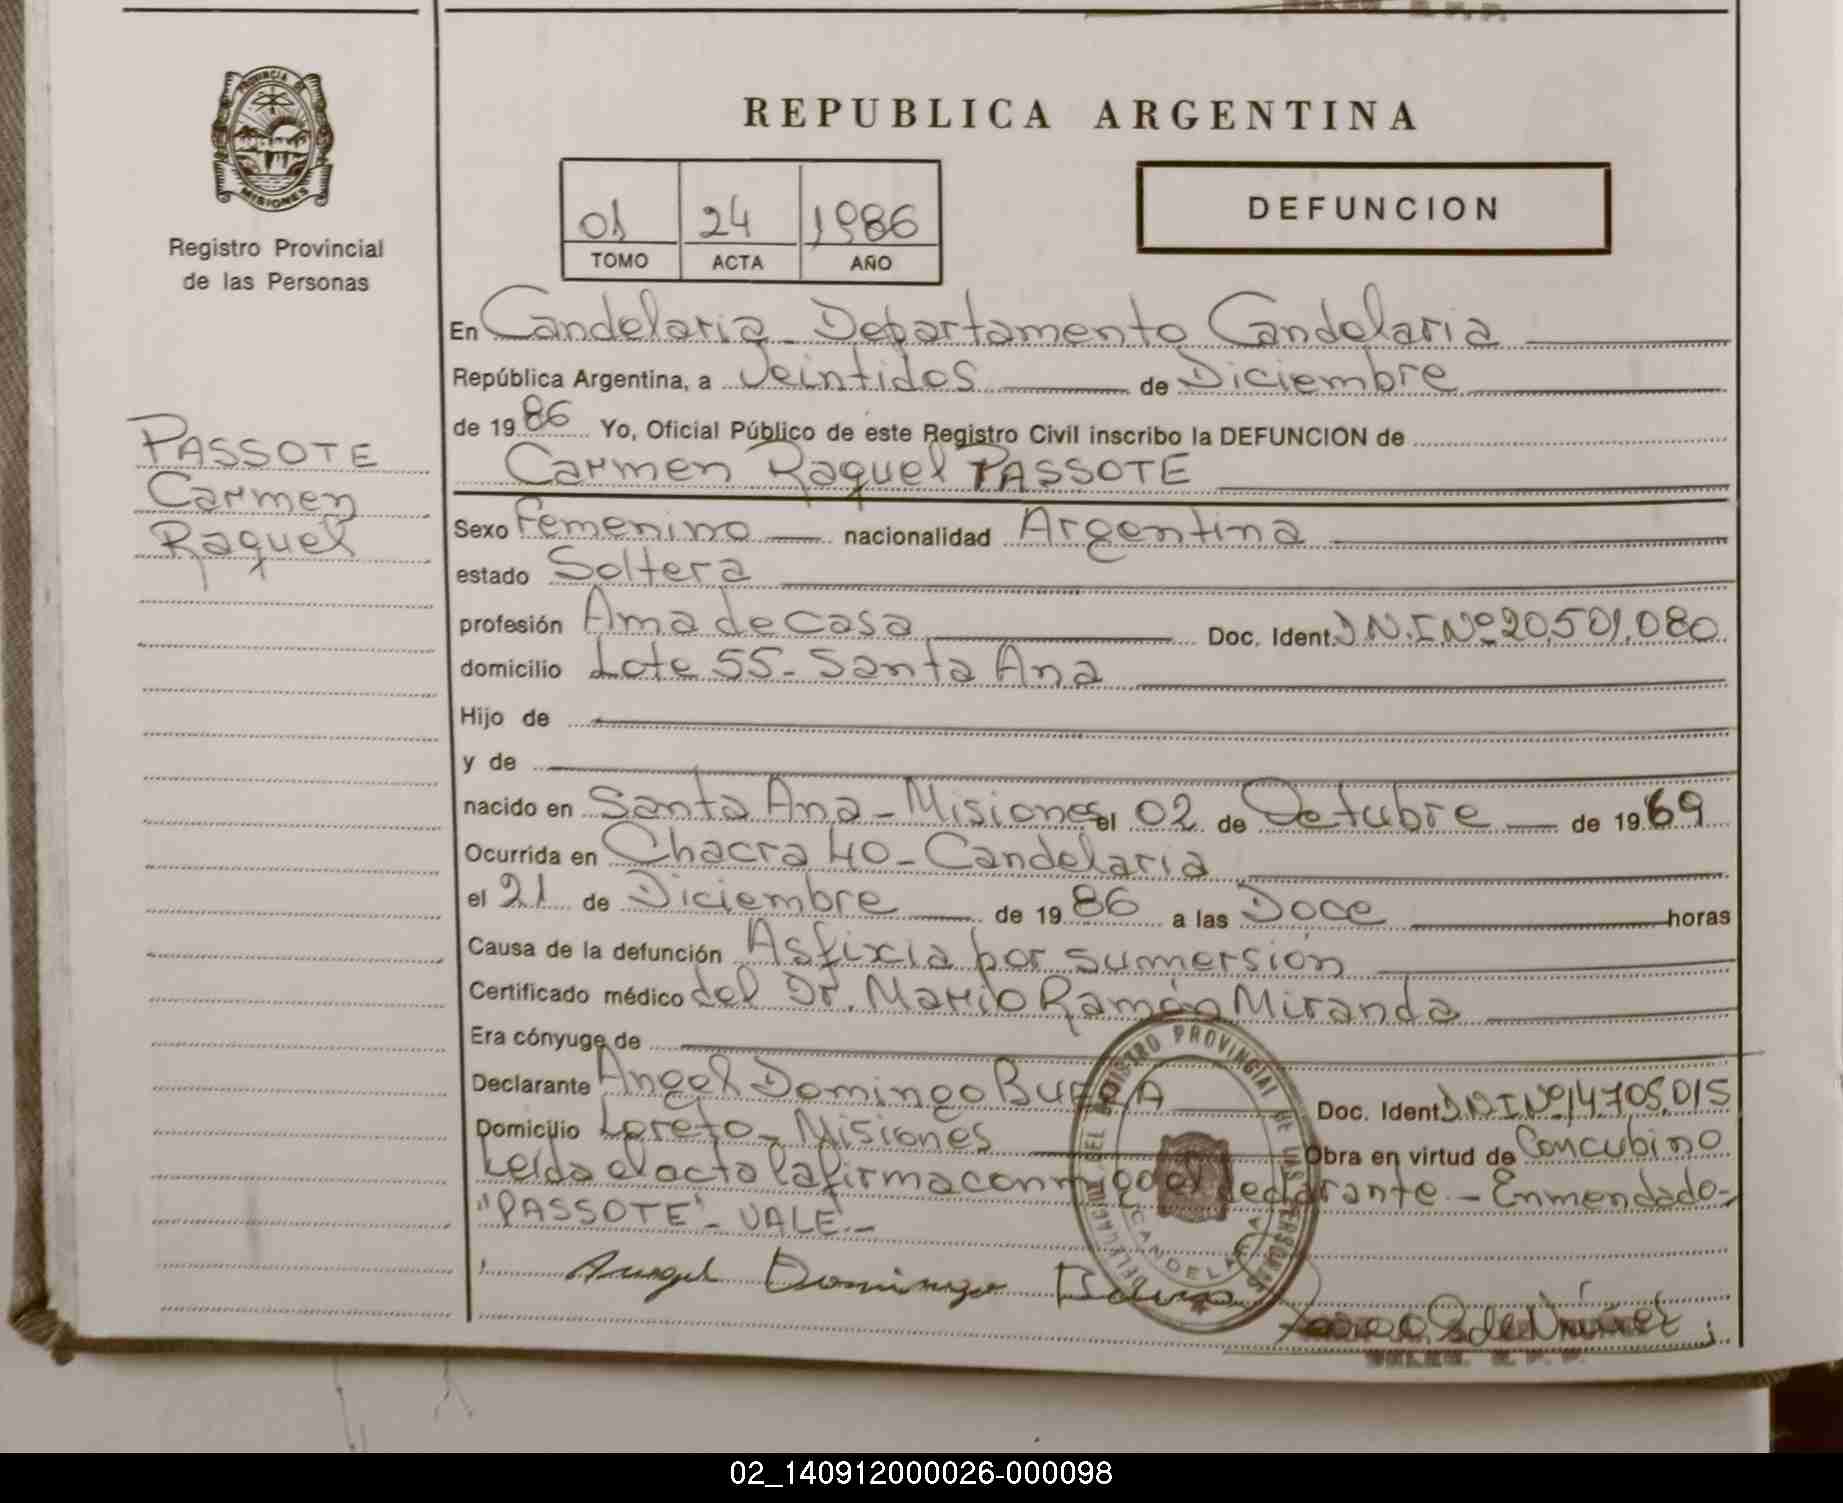 PROVINCIA DE
MISIONES
Registro Provincial
de las Personas
REPUBLICA ARGENTINA
01 24 1986
TOMO ACTA AÑO
DEFUNCION
En Candelaria - Departamento Candelaria
República Argentina, a Veintidos de Diciembre
de 1986 Yo, Oficial Público de este Registro Civil inscribo la DEFUNCION de
Carmen Raquel PASSOTE
PASSOTE
Carmen
Raquel
Sexo Femenino nacionalidad Argentina
estado Soltera
profesión Ama de casa Doc. Ident. D.N.I.Nº 20.501.080
domicilio Lote 55 - Santa Ana
Hijo de
y de
nacido en Santa Ana - Misiones el 02 de Octubre de 1969
Ocurrida en Chacra 40 - Candelaria
el 21 de Diciembre de 1986 a las Doce horas
Causa de la defunción Asfixia por sumersión
Certificado médico del Dr. Mario Ramón Miranda
Era cónyuge de
Declarante Angel Domingo Doc. Ident. D.N.I Nº 14.705.015
Domicilio Loreto - Misiones Obra en virtud de Concubino
Leída el acta la firma conmigo el declarante. - Enmendado -
"PASSOTE" - VALE. -
Angel Domingo
REGISTRO PROVINCIAL DE LAS PERSONAS
CANDELARIA
02_140912000026-000098